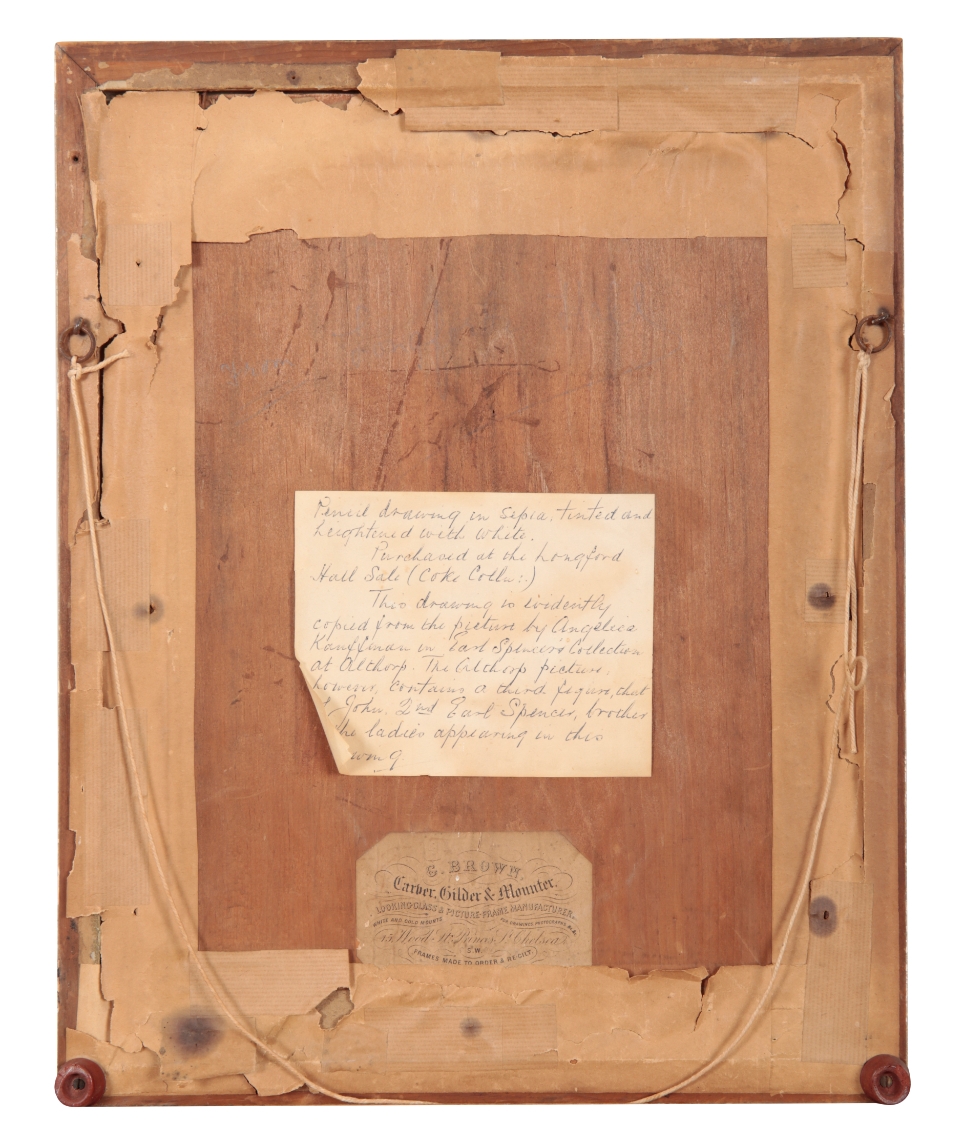 Pencil drawing in Sepia, tinted and
heightened with white.
Purchased at the Longford
Hall Sale (Coke Colln:.)
This drawing is evidently
copied from the picture by Angelica
Kauffman in Earl Spencer's Collection
at Althorp. The Althorp picture,
however, contains a third figure, that
John. 2nd Earl Spencer, brother
he ladies appearing in this
wing.
G. BROWN,
Carver, Gilder & Mounter.
LOOKING-GLASS & PICTURE-FRAME MANUFACTURER.
WHITE AND GOLD MOUNTS FOR DRAWINGS PHOTOGRAPHS
Wood St. Princes St. Chelsea
S.W.
FRAMES MADE TO ORDER & RE-GILT.